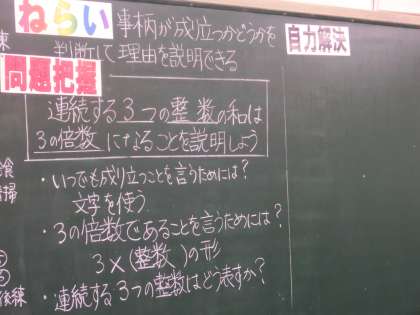 ねらい
事柄が成り立つかどうかを
判断して理由を説明できる
自力解決
問題把握
連続する3つの整数の和は
3の倍数になることを説明しよう
・いつでも成り立つことを言うためには?
文字を使う
・3の倍数であることを言うためには?
3×(整数)の形
・連続する3つの整数はどう表すか?